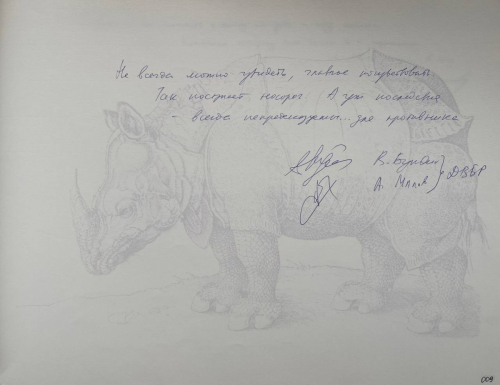 Не всегда можно увидеть, главное почувствовать
Так поступает носорог. А уж последствия
- всегда непредсказуемы... для противника
В. Бунь
А. Мялов } "ДВБР
009